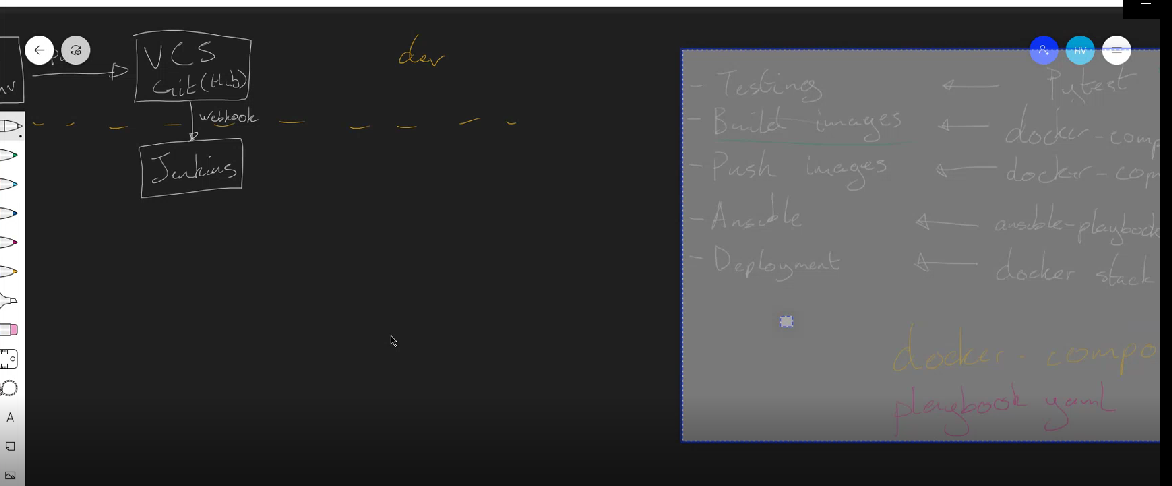 VCS
Git(Hub)
dev
webhook
Jenkins
HV
- Testing ← Pytest
- Build images ← docker-comp
- Push images ← docker-com
- Ansible ← ansible-playbook
- Deployment ← docker stack
docker-compo
playbook yaml
A